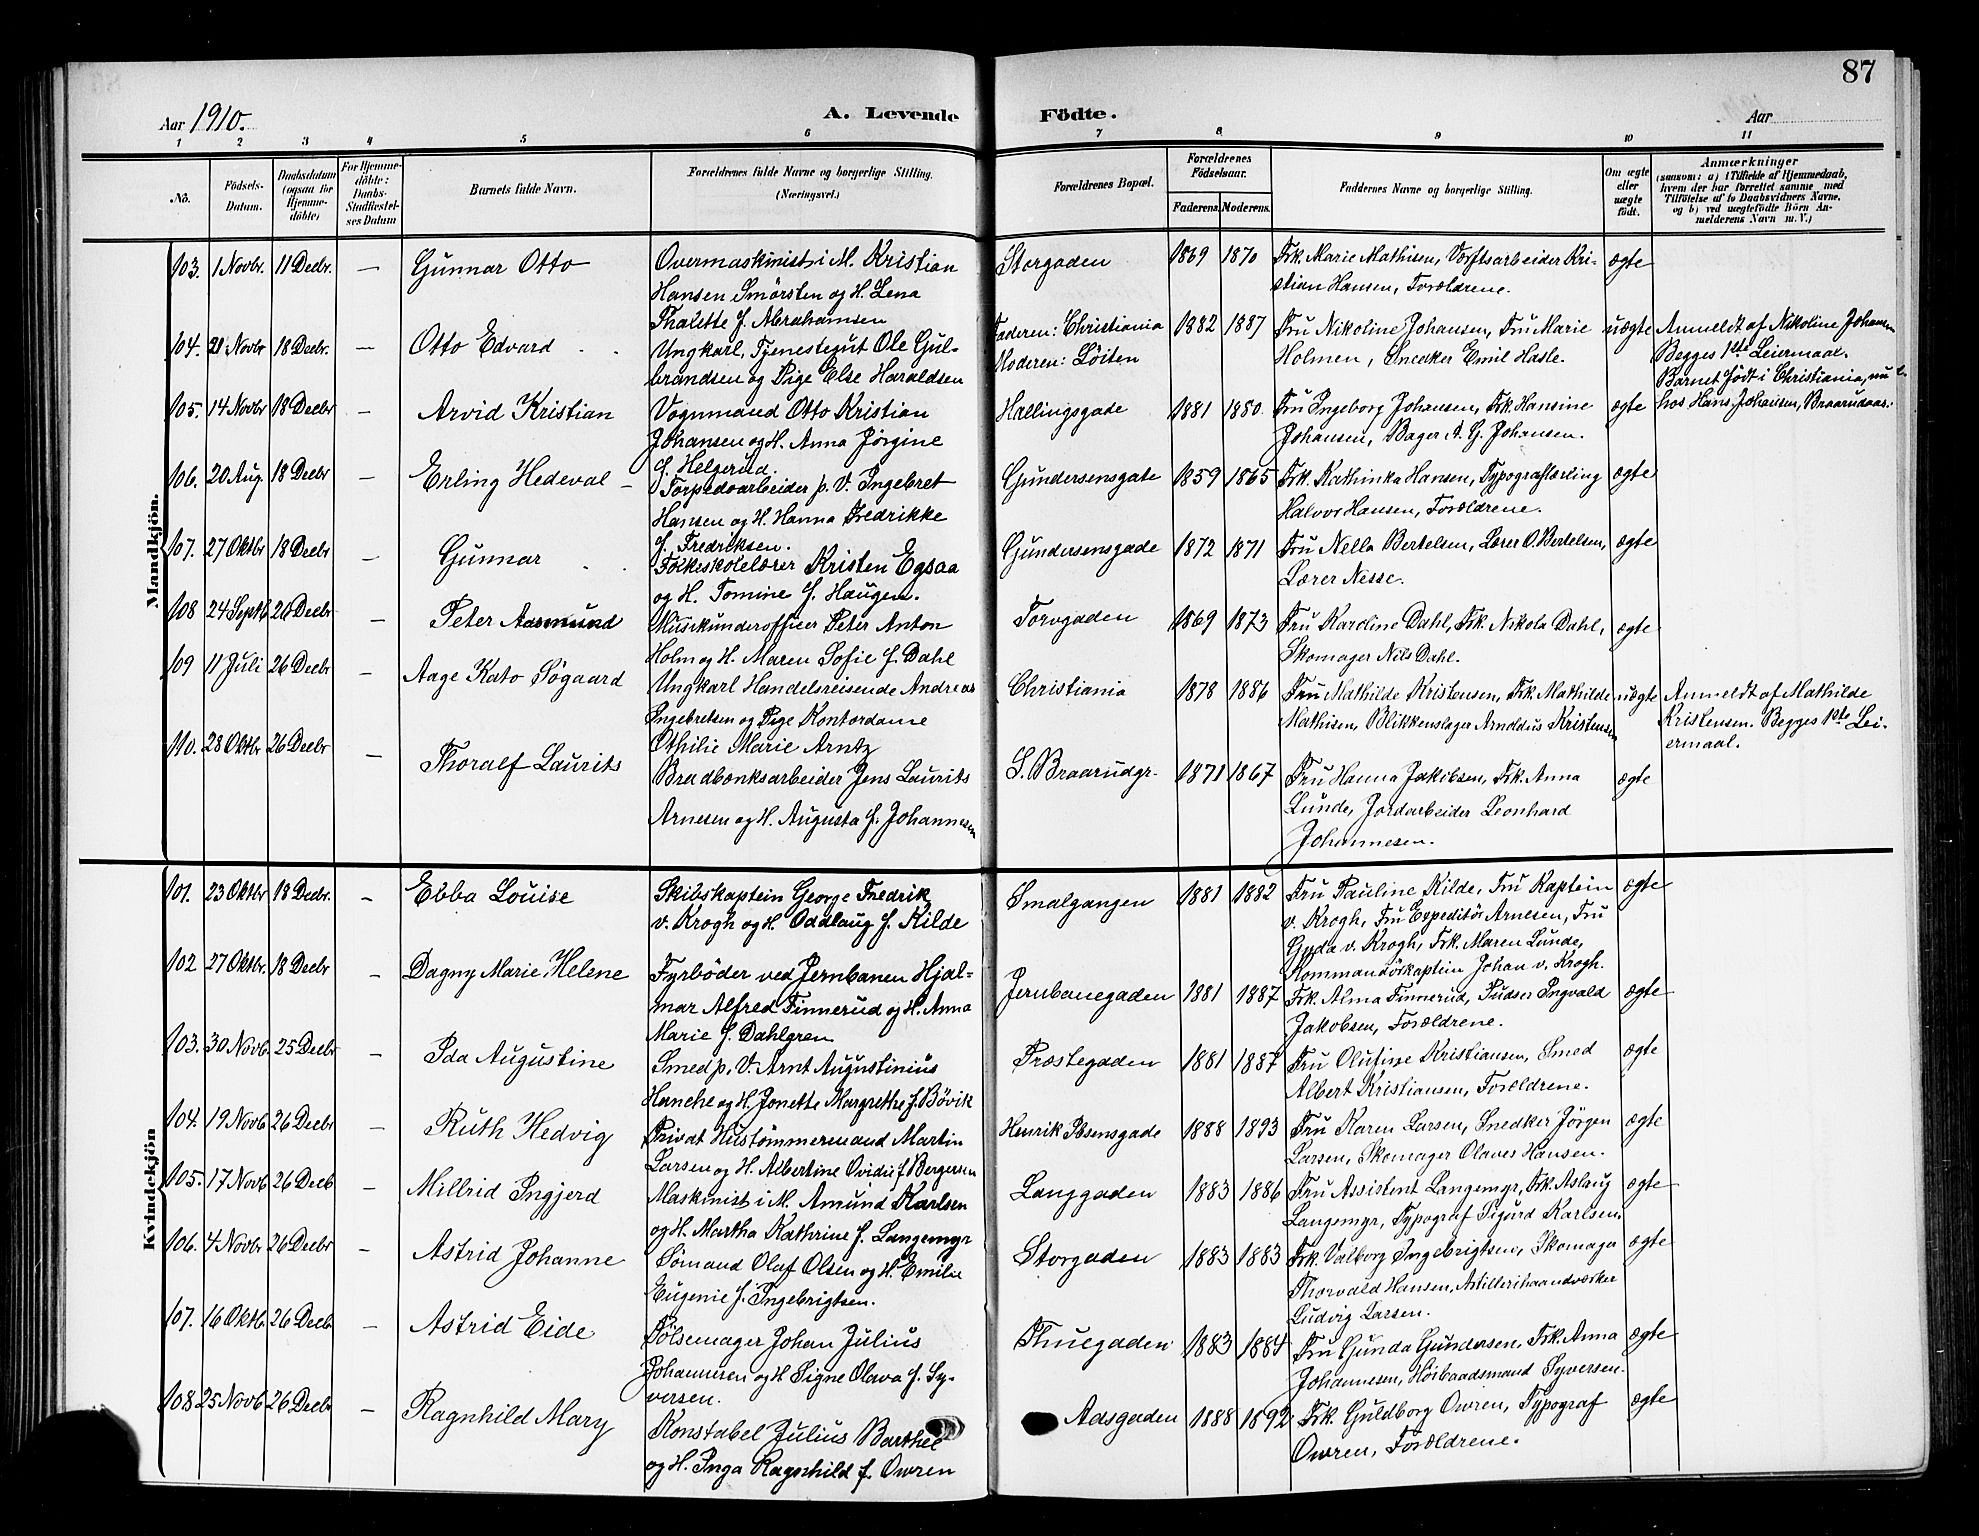 87
Aar 1910.
A. Levende Födte.
Aar
1 2 3 4 5 6 7 8 9 10 11
No.
Födsels-Datum.
Daabsdatum (ogsaa for Hjemmedöbte)
For Hjemmedöbte: Daabs-Stadfæstelses Datum
Barnets fulde Navn.
Forældrenes fulde Navne og borgerlige Stilling. (Næringsvei.)
Forældrenes Bopæl.
Forældrenes Födselsaar.
Faderens. Moderens.
Faddernes Navne og borgerlige Stilling.
Om ægte eller uægte födt.
Anmærkninger
(saasom: a) i Tilfælde af Hjemmedaab, hvem der har forrettet samme med Tilföielse af to Daabsvidners Navne. og b) ved uægtefödte Börn Anmelderens Navn m. V.)
Mandkjön.
103. 1 Novbr. 11 Decbr. — Gunnar Otto
Overmaskinist i M. Kristian
Hansen Smörsten og H. Lena
Thalette f. Abrahamsen
Storgaden 1869 1870
Frk. Marie Mathisen, Værftsarbeider Kri-
stian Hansen, Forældrene.
ægte
104. 21 Novbr 18 Decbr. — Otto Edvard
Ungkarl, Tjenestegut Ole Gul-
brandsen og Pige Else Haraldsen
Faderen: Christiania
Moderen: Löiten
1882 1887
Fru Nikoline Johansen, Fru Marie
Holmen, Snedker Emil Hasle.
uægte
Anmeldt af Nikoline Johansen
Begges 1ste Leiermaal.
Barnet födt i Christiania, nu
hos Hans Johansen, Braarudaas.
105. 14 Novbr 18 Decbr — Arvid Kristian
Vognmand Otto Kristian
Johansen og H. Anna Jørgine
f. Helgerud.
Hallingsgade 1881 1880
Fru Ingeborg Johansen, Frk. Hansine
Johansen, Bager A. G. Johansen.
ægte
106. 20 Aug. 18 Decbr — Erling Hedeval
Torpedoarbeider p. V. Ingebret
Hansen og H. Hanna Fredrikke
f. Fredriksen.
Gundersensgate 1859 1865
Frk. Kathinka Hansen, Typograflærling
Halvor Hansen, Forældrene.
ægte
107. 27 Oktbr 18 Decbr — Gunnar
Folkeskolelærer Kristen Egsaa
og H. Tomine f. Haugen.
Gundersensgade 1872 1871
Fru Nella Bertelsen, Lærer O. Bertelsen,
Lærer Nesse.
ægte
108 24 Septb 26 Decbr — Peter Aasmund
Musikunderofficer Peter Anton
Holm og H. Maren Sofie f. Dahl
Torvgaden 1869 1873
Fru Karoline Dahl, Frk. Nikola Dahl,
Skomager Nils Dahl.
ægte
109 11 Juli 26 Decbr — Aage Kato Søgaard
Ungkarl Handelsreisende Andreas
Ingebretsen og Pige Kontordame
Othilie Marie Arntz
Christiania 1878 1886
Fru Mathilde Kristensen, Frk. Mathilde
Mathisen, Blikkenslager Arnoldus Kristensen
uægte
Anmeldt af Mathilde
Kristensen. Begges 1ste Lei-
ermaal.
110. 28 Oktbr 26 Decbr — Thoralf Laurits
Bradbænksarbeider Jens Laurits
Arnesen og H. Augusta f. Johannesen
S. Braarudgr. 1871 1867
Fru Hanna Jakobsen, Frk. Anna
Lunde, Jordarbeider Leonhard
Johannesen.
ægte
Kvindekjön
101. 23 Oktbr 18 Decbr. — Ebba Louise
Skibskaptein George Fredrik
v. Krogh og H. Oddlaug f. Kilde
Smalgangen 1881 1882
Fru Pauline Kilde, Fru Kaptein
v. Krogh, Fru Expeditör Arnesen, Fru
Gyda v. Krogh, Frk. Maren Lunde,
Kommandörkaptein Johan v. Krogh.
ægte
102 27 Oktbr. 18 Decbr — Dagny Marie Helene
Fyrböder ved Jernbanen Hjal-
mar Alfred Finnerud og H. Anna
Marie f. Dahlgren
Jernbanegaden 1881 1887
Frk. Alma Finnerud, Pudser Ingvald
Jakobsen, Forældrene.
ægte
103. 30 Novb. 25 Decbr — Ida Augustine
Smed p. V. Arnt Augustinius
Hanche og H. Jonette Margrethe f. Bövik
Præstegaden 1881 1887
Fru Olufine Kristiansen, Smed
Albert Kristiansen, Forældrene.
ægte
104. 19 Novb 26 Decbr — Ruth Hedvig
Privat Hustömmermand Martin
Larsen og H. Albertine Ovidie f. Bergersen
Henrik Ibsensgade 1888 1893
Fru Karen Larsen, Snedker Jörgen
Larsen, Skomager Olaves Hansen.
ægte
105. 17 Novb 26 Decb — Millrid Ingjerd
Maskinist i M. Amund Karlsen
og H. Martha Kathrine f. Langemyr
Langgaden 1883 1886
Fru Assistent Langemyr, Frk. Aslaug
Langemyr, Typograf Sigurd Karlsen.
ægte
106. 4 Novbr 26 Decbr — Astrid Johanne
Sömand Olaf Olsen og H. Emilie
Eugenie f. Ingebrigtsen.
Storgaden 1883 1883
Frk. Valborg Ingebrigtsen, Skomager
Thorvald Hansen, Artillerihaandværker
Ludvig Larsen.
ægte
107. 16 Oktb. 26 Decb — Astrid Eide
Pölsemager Johan Julius
Johannesen og H Signe Olava f. Sy-
versen.
Thuegaden 1883 1884
Fru Gunda Gundersen, Frk. Anna
Johannesen, Höibaadsmand Syversen.
ægte
108 25 Novb 26 Decbr — Ragnhild Mary
Konstabel Julius Barthel
og H. Inga Ragnhild f. Owren
Adsgaden 1888 1892
Frk. Guldborg Owren, Typograf
Owren, Forældrene.
ægte